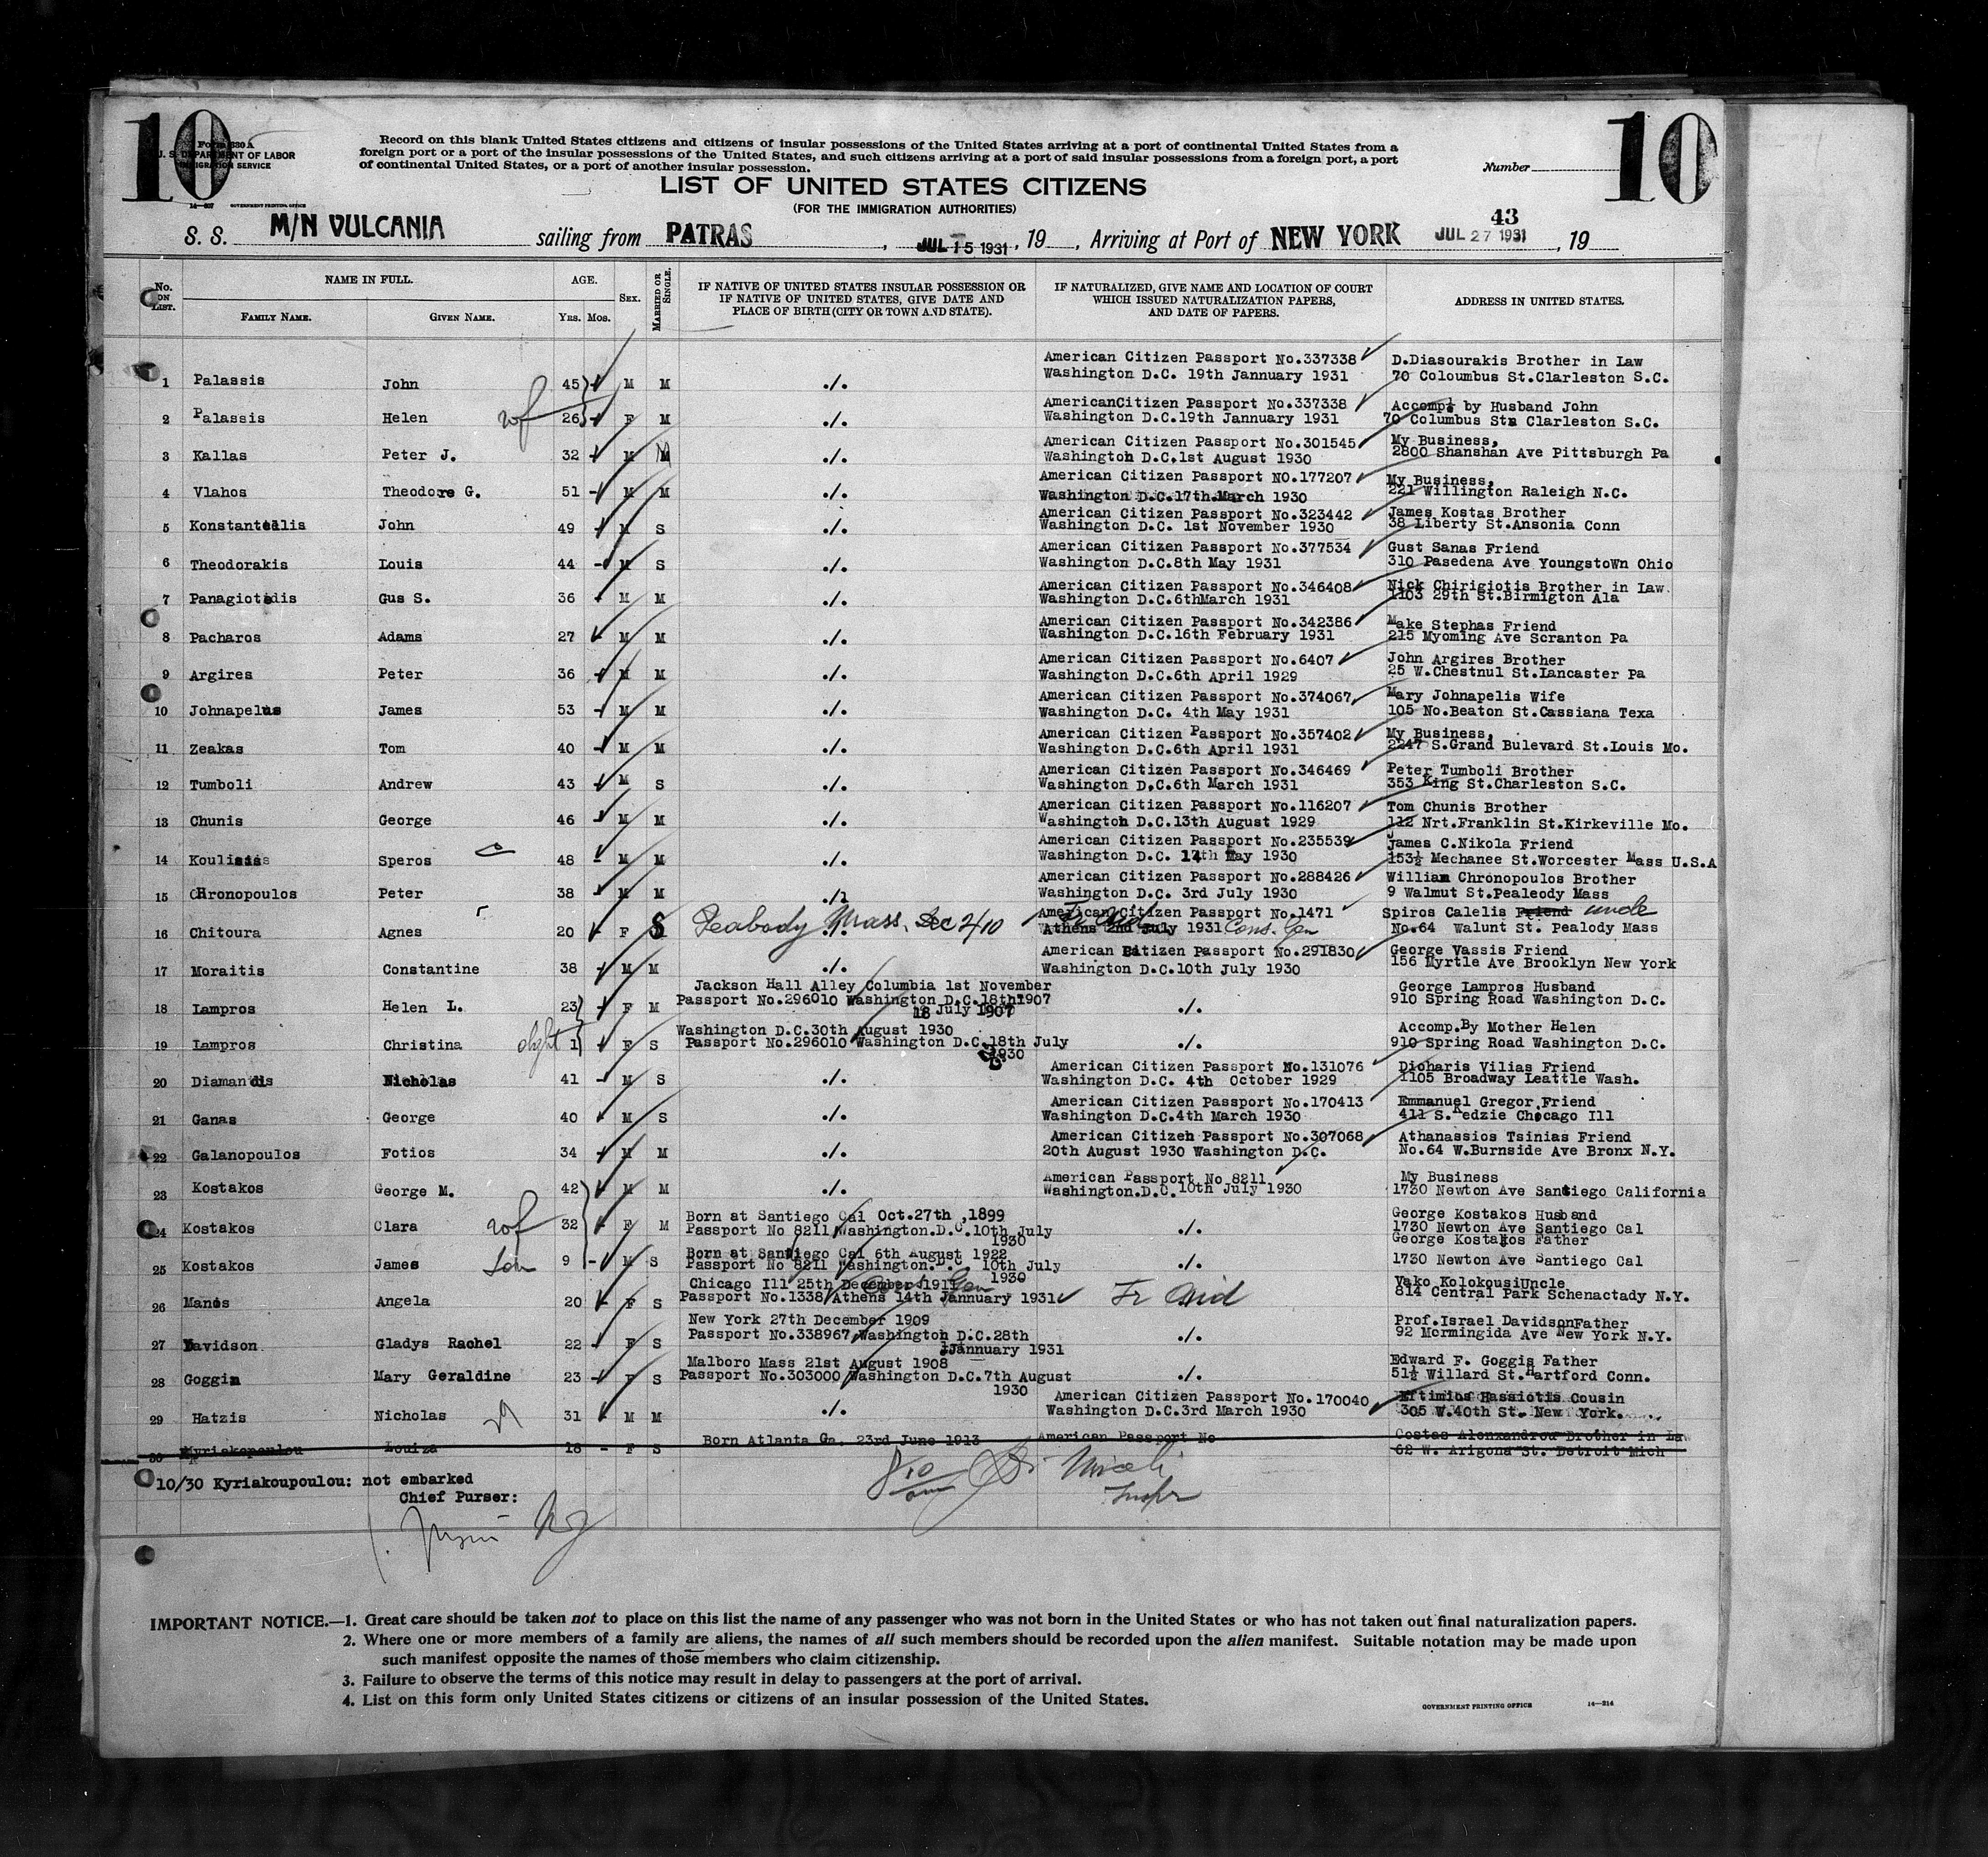 10
10
Form 630 A
U. S. DEPARTMENT OF LABOR
IMMIGRATION SERVICE
14—207 GOVERNMENT PRINTING OFFICE
Record on this blank United States citizens and citizens of insular possessions of the United States arriving at a port of continental United States from a
foreign port or a port of the insular possessions of the United States, and such citizens arriving at a port of said insular possessions from a foreign port, a port
of continental United States, or a port of another insular possession.
Number
LIST OF UNITED STATES CITIZENS
(FOR THE IMMIGRATION AUTHORITIES)
43
S. S. M/N VULCANIA sailing from PATRAS, JUL 15 1931, 19 , Arriving at Port of NEW YORK JUL 27 1931, 19
No. ON LIST. NAME IN FULL. AGE. SEX. MARRIED OR SINGLE. IF NATIVE OF UNITED STATES INSULAR POSSESSION OR IF NATIVE OF UNITED STATES, GIVE DATE AND PLACE OF BIRTH (CITY OR TOWN AND STATE). IF NATURALIZED, GIVE NAME AND LOCATION OF COURT WHICH ISSUED NATURALIZATION PAPERS, AND DATE OF PAPERS. ADDRESS IN UNITED STATES.
FAMILY NAME. GIVEN NAME. YRS. MOS.
American Citizen Passport No.337338 D.Diasourakis Brother in Law
1 Palassis John 45 - M M ./. Washington D.C. 19th Jannuary 1931 70 Coloumbus St.Clarleston S.C.
AmericanCitizen Passport No.337338 Accompt by Husband John
2 Palassis Helen wf 26 - F M ./. Washington D.C.19th Jannuary 1931 70 Columbus Sts Clarleston S.C.
American Citizen Passport No.301545 My Business,
3 Kallas Peter J. 32 - M M ./. Washington D.C.1st August 1930 2800 Shanshan Ave Pittsburgh Pa
American Citizen Passport NO.177207 My Business,
4 Vlahos Theodore G. 51 - M M ./. Washington D.C.17th March 1930 221 Willington Raleigh N.C.
American Citizen Passport No.323442 James Kostas Brother
5 Konstantellis John 49 - M S ./. Washington D.C. 1st November 1930 38 Liberty St.Ansonia Conn
American Citizen Passport No.377534 Gust Sanas Friend
6 Theodorakis Louis 44 - M S ./. Washington D.C.8th May 1931 310 Pasedena Ave YoungstoWn Ohio
American Citizen Passport No.346408 Nick Chirigiotis Brother in Law
7 Panagiotidis Gus S. 36 - M M ./. Washington D.C.6thMarch 1931 1103 29th St.Birmigton Ala
American Citizen Passport No.342386 Make Stephas Friend
8 Pacharos Adams 27 - M M ./. Washington D.C.16th February 1931 215 Myoming Ave Scranton Pa
American Citizen Passport No.6407 John Argires Brother
9 Argires Peter 36 - M M ./. Washington D.C.6th April 1929 25 W.Chestnul St.Lancaster Pa
American Citizen Passport No.374067 Mary Johnapelis Wife
10 Johnapelus James 53 - M M ./. Washington D.C. 4th May 1931 105 No.Beaton St.Cassiana Texa
American Citizen Passport No.357402 My Business,
11 Zeakas Tom 40 - M M ./. Washington D.C.6th April 1931 2247 S.Grand Bulevard St.Louis Mo.
American Citizen Passport No.346469 Peter Tumboli Brother
12 Tumboli Andrew 43 - M S ./. Washington D.C.6th March 1931 353 King St.Charleston S.C.
American Citizen Passport No.116207 Tom Chunis Brother
13 Chunis George 46 - M M ./. Washington D.C.13th August 1929 112 Nrt.Franklin St.Kirkeville Mo.
American Citizen Passport No.235539 James C.Nikola Friend
14 Speros 48 - M M ./. Washington D.C. 14th May 1930 153½ Mechanee St.Worcester Mass U.S.A
American Citizen Passport No.288426 William Chronopoulos Brother
15 CHronopoulos Peter 38 - M M Washington D.C. 3rd July 1930 9 Walmut St.Pealeody Mass
American Citizen Passport No.1471 Spiros Calelis Friend uncle
16 Chitoura Agnes 20 - F S Peabody Mass. Dec 2/10 Athens 2nd July 1931 Cons. Gen No.64 Walunt St. Pealody Mass
American Citizen Passport No.291830 George Vassis Friend
17 Moraitis Constantine 38 - M M ./. Washington D.C.10th July 1930 156 Myrtle Ave Brooklyn New York
Jackson Hall Alley Columbia 1st November George Lampros Husband
18 Lampros Helen L. 23 - F M Passport No.296010 Washington D.C.18th 1907 ./. 910 Spring Road Washington D.C.
18 July 1907
Washington D.C.30th August 1930 Accomp.By Mother Helen
19 Lampros Christina dght 1 - F S Passport No.296010 Washington D.C.18th July ./. 910 Spring Road Washington D.C.
1930
American Citizen Passport No.131076 Dioharis Vilias Friend
20 Diamandis Nicholas 41 - M S ./. Washington D.C. 4th October 1929 1105 Broadway Leattle Wash.
American Citizen Passport No.170413 Emmanuel Gregor Friend
21 Ganas George 40 - M S ./. Washington D.C.4th March 1930 411 S.Kedzie Chicago Ill
American Citizen Passport No.307068 Athanassios Tsinias Friend
22 Galanopoulos Fotios 34 - M M ./. 20th August 1930 Washington D.C. No.64 W.Burnside Ave Bronx N.Y.
American Passport No 8211 My Business
23 Kostakos George M. 42 - M M ./. Washington.D.C. 10th July 1930 1730 Newton Ave Santiego California
Born at Santiego Cal Oct.27th ,1899 George Kostakos Husband
24 Kostakos Clara wf 32 - F M Passport No 8211 Washington.D.C.10th July ./. 1730 Newton Ave Santiego Cal
1930 George Kostakos Father
Born at Santiego Cal 6th August 1922
25 Kostakos James Son 9 - M S Passport No 8211 Washington. D.C. 10th July ./. 1730 Newton Ave Santiego Cal
1930
Chicago Ill 25th December 1911 Cons Gen Vako KolokousiUncle
26 Manos Angela 20 - F S Passport No.1338 Athens 14th Jannuary 1931 Fr Aid 814 Central Park Schenactady N.Y.
New York 27th December 1909 Prof.Israel DavidsonFather
27 Davidson Gladys Rachel 22 - F S Passport No.338967 Washington D.C.28th ./. 92 Mormingida Ave New York N.Y.
Jannuary 1931
Malboro Mass 21st August 1908 Edward F. Goggis Father
28 Goggin Mary Geraldine 23 - F S Passport No.303000 Washington D.C.7th August ./. 51½ Willard St.Hartford Conn.
1930
American Citizen Passport No.170040 Eftimios Hassiotis Cousin
29 Hatzis Nicholas 31 - M M ./. Washington D.C.3rd March 1930 305 W.40th St. New York.
Born Atlanta Ga. 23rd June 1913 American Passport No Costas Alenxandrou Brother in La
30 Kyriakopoulou Louiza 18 - F S 62 W. Arigona St. Detroit Mich
10/30 Kyriakoupoulou: not embarked
Chief Purser:
IMPORTANT NOTICE.—1. Great care should be taken not to place on this list the name of any passenger who was not born in the United States or who has not taken out final naturalization papers.
2. Where one or more members of a family are aliens, the names of all such members should be recorded upon the alien manifest. Suitable notation may be made upon
such manifest opposite the names of those members who claim citizenship.
3. Failure to observe the terms of this notice may result in delay to passengers at the port of arrival.
4. List on this form only United States citizens or citizens of an insular possession of the United States.
GOVERNMENT PRINTING OFFICE 14—214